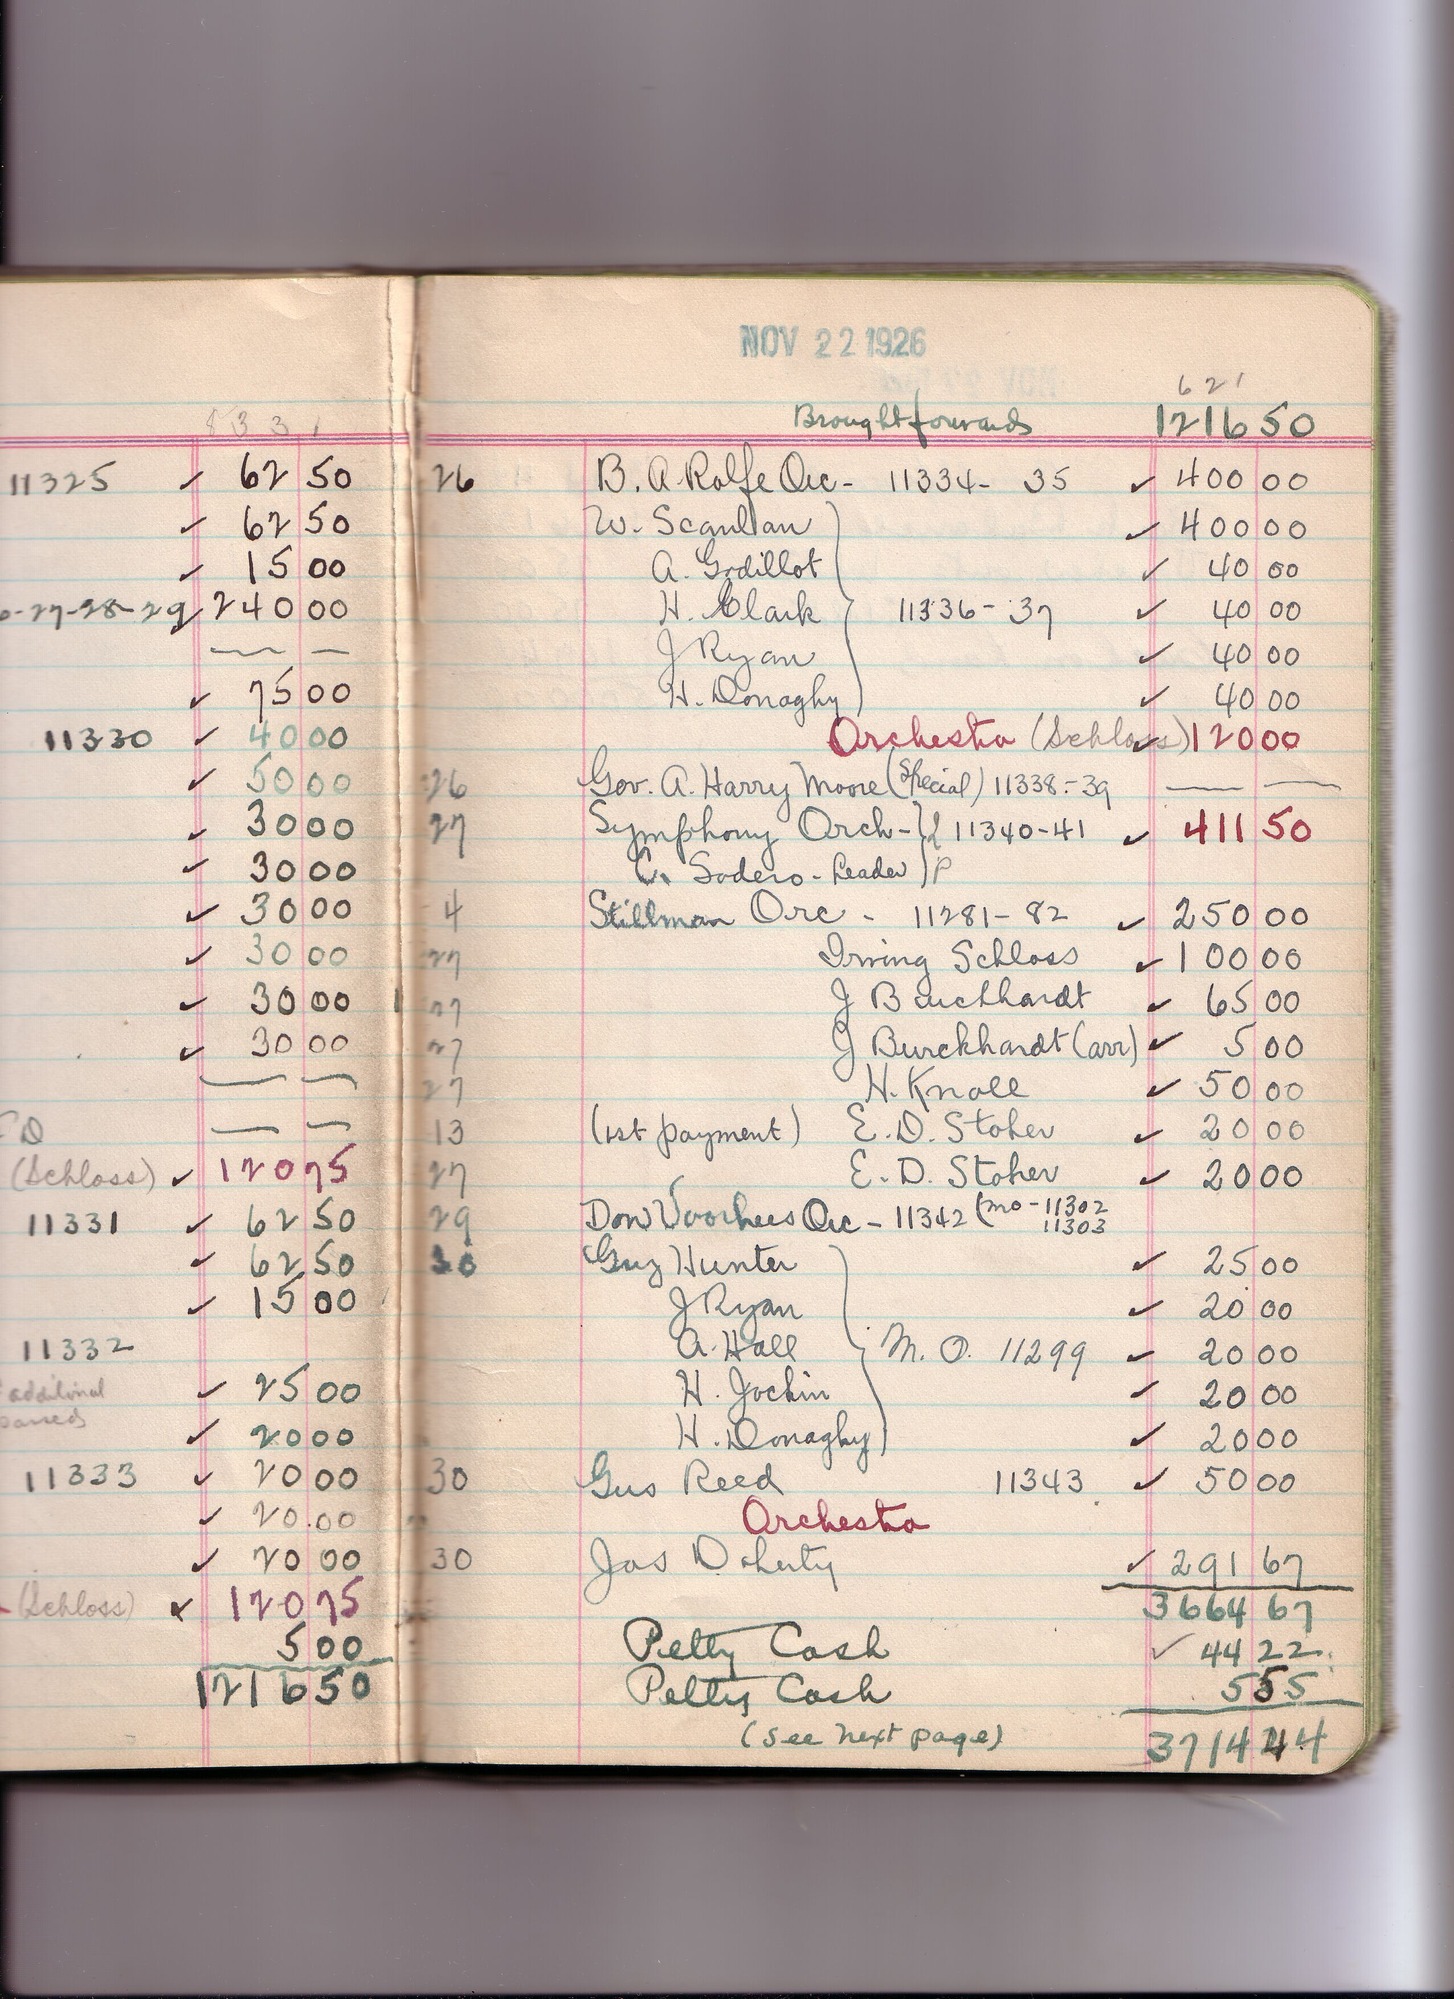 8331
11325 ✓ 62 50
✓ 62 50
✓ 15 00
-27-28-29 240 00
— —
✓ 75 00
11330 ✓ 40 00
✓ 50 00
✓ 30 00
✓ 30 00
✓ 30 00
✓ 30 00
✓ 30 00
✓ 30 00
— —
— —
(Schloss) ✓ 120 75
11331 ✓ 62 50
✓ 62 50
✓ 15 00
11332
additional
✓ 25 00
✓ 20 00
11333 ✓ 20 00
✓ 20.00
✓ 20 00
(Schloss) ✓ 120 75
5 00
1216 50
NOV 22 1926
621
Brought forwards 1216 50
26 B. A. Rolfe Orc - 11334 - 35 ✓ 400 00
W. Scanlan ✓ 400 00
A. Godillot ✓ 40 00
H. Clark 11336 - 37 ✓ 40 00
J Ryan ✓ 40 00
H. Donaghy ✓ 40 00
Orchestra (Schloss) ✓ 120 00
26 Gov. A. Harry Moore (Special) 11338 - 39 — —
27 Symphony Orch - 11340-41 ✓ 411 50
C. Sodero - Leader
4 Stillman Orc - 11281 - 82 ✓ 250 00
27 Irving Schloss ✓ 100 00
27 J Burckhardt ✓ 65 00
27 J Burckhardt (arr) ✓ 5 00
27 H. Knoll ✓ 50 00
13 (1st payment) E. D. Stoher ✓ 20 00
27 E. D. Stoher ✓ 20 00
29 Don Voorhees Orc - 11342 (mo - 11302
11303
30 Guy Hunter ✓ 25 00
J Ryan ✓ 20 00
A. Hall M. O. 11299 ✓ 20 00
H. Jochin ✓ 20 00
H. Donaghy ✓ 20 00
30 Gus Reed 11343 ✓ 50 00
Orchestra
30 Jas Doherty ✓ 291 67
3664 67
Petty Cash ✓ 44 22
Petty Cash 5 55
(See next page) 3714 44